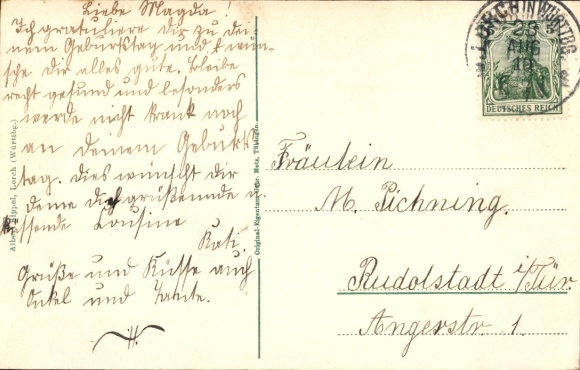 Liebe Magda!
Ich gratuliere dir zu dei-
nem Geburtstag und wün-
sche dir alles gute. Bleibe
recht gesund und besonders
werde nicht krank noch
an deinem Geburts
tag. Dies wünscht dir
deine dich grüßennde u
küssende Cousine
Kati.
Grüße und Küsse auch
Onkel und Tante.
Lorch (Württbg.)
Original-Eigentum Metz, Tübingen.
LORCH IN WÜRTTBG.
25
AUG
10
DEUTSCHES REICH
Fräulein
M. Pichning.
Rudolstadt i/Tür.
Angerstr. 1.